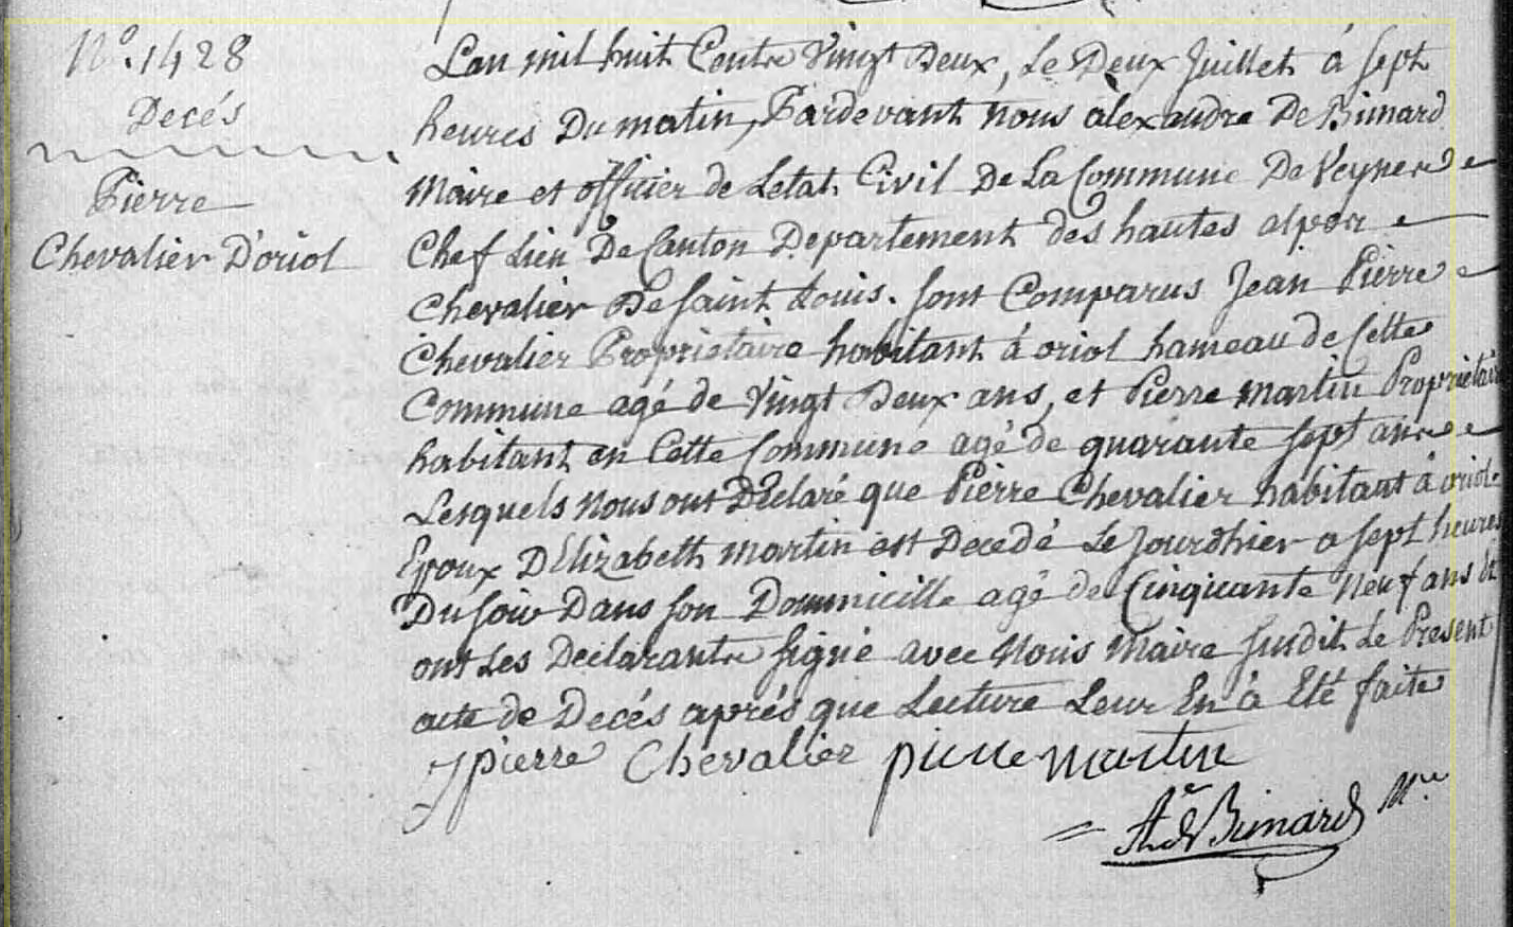 N.º 1428
Decés
Pierre
Chevalier D'oriol
Lan mil huit Cents Vingt Deux, Le Deux Juillet à sept
heures Du matin, Pardevant Nous alexandre De Bimard
Maire et officier de Letat Civil De La Commune De Veynes
Chef Lieu De Canton Departement des hautes alpes
Chevalier De Saint Louis. sont Comparus Jean Pierre
Chevalier Proprietaire habitant à oriol hameau de Cette
Commune agé de Vingt Deux ans, et Pierre Martin Proprietaire
habitant en Cette Commune agé de quarante sept ans
Lesquels Nous ont Déclaré que Pierre Chevalier habitant à oriol
Epoux D'Elizabeth Martin est Decedé Le Jourdhier a sept heures
Du soir Dans son Dommicille agé de Cinquante Neuf ans Et
ont Les Declarants signé avec Nous Maire susdit Le Present
acte de Decés aprés que Lecture Leur En à Eté faite
J pierre Chevalier pierre martin
A.e de Bimard M.re